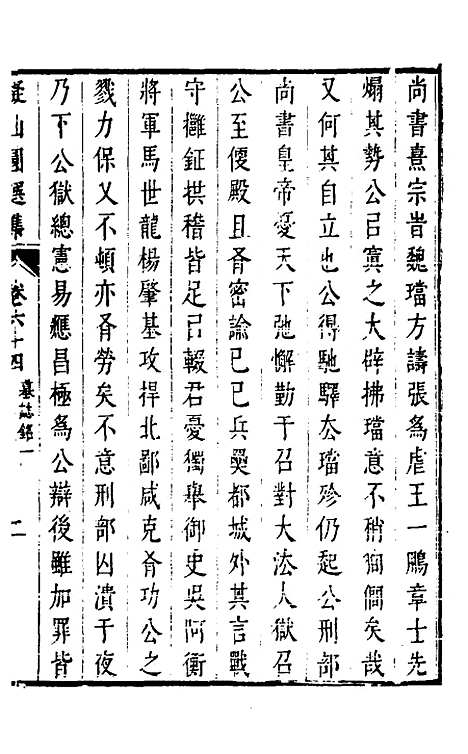 尚書熹宗旹魏璫方譸張為虐王一鵬章士先
煽其勢公㠯寘之大辟拂璫意不稍徇個矣哉
又何其自立也公得馳驛厺璫殄仍起公刑部
尚書皇帝憂天下弛懈勤于召對大㳒人獄召
公至便殿且有密諭己巳兵㷼都城外其言戰
守攤鉦拱稽皆足㠯輟君憂獨舉御史吳阿衡
將軍馬世龍楊肇基攻捍北鄙咸克有功公之
戮力保乂不頓亦有勞矣不意刑部囚潰于夜
乃下公獄總憲易應昌極為公辯後雖加罪皆
擬山園選集 卷六十四 墓誌銘一 二